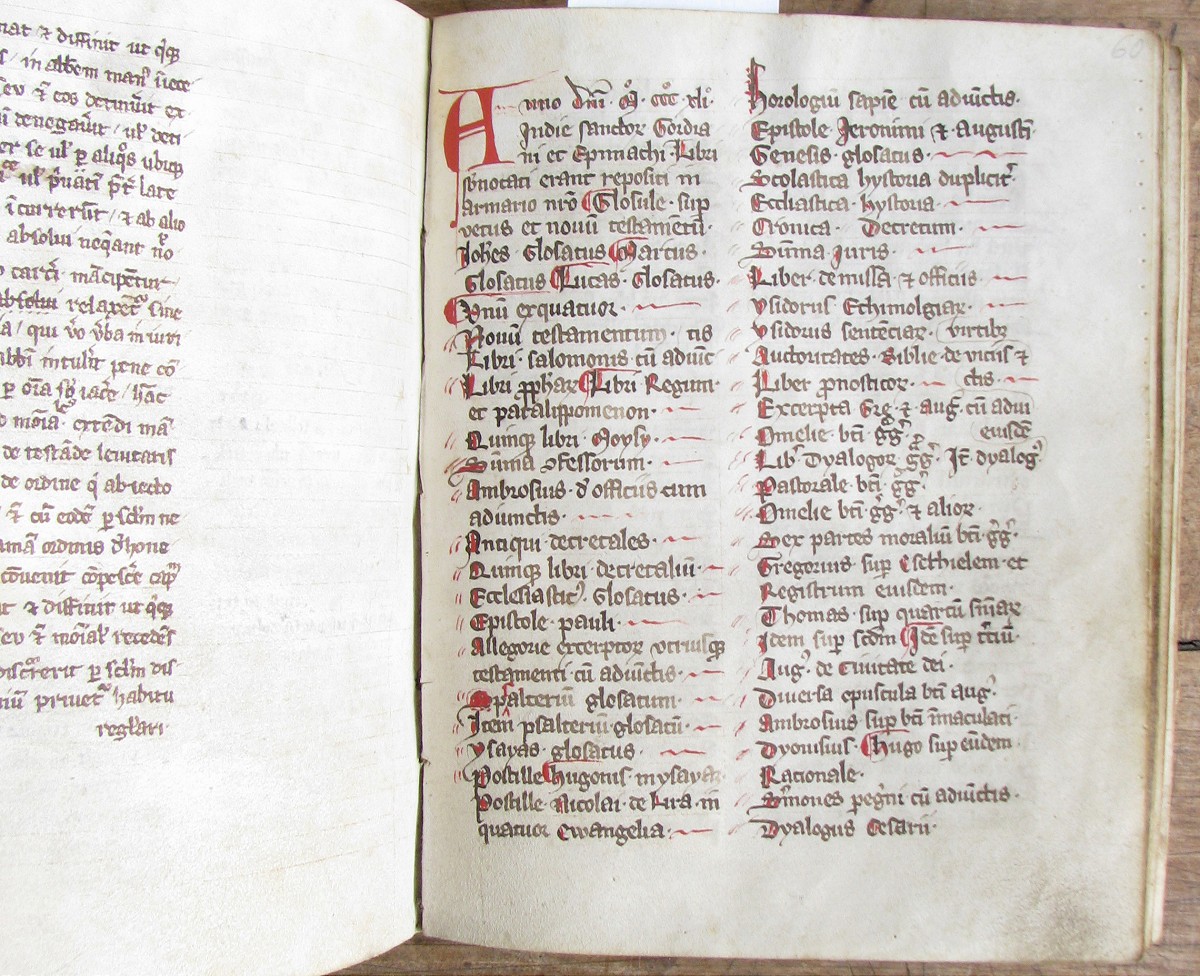 nat & diffinit ut q̄sq̄
/ in abbēm man⁹ iniece
seu ē eos detinuit ex
denegauīt / ul' deti
er se ul' ꝑ aliq̄s ubiq̨
ul' p̄uati p̄t late
īcurrerūt / & ab alio
absolui neq̄ant nō
carcī mācipētur
absolui relaxet~ sine
/ qui ūo ūba iniuri
abbī intul'it pene
ꝑ oīa sb̄iaceē / hāc
moīal' extēdi
de testāde leuitatis
de ordine q̄ abiecto
& cū eodē ꝑ sclm̄ ne
ordinis
cōuenit cōpescē
& diffinit ut q̄sq̄
seu ē moīal' recedēs
discr̄erit ꝑ sclm̄ dis
priuet~ habitu
regl'ari·
60
Anno dn̄i · M̊ · ccc̊ · xli·
Indie sanctor Gordia
ni et Epymachi · Libri
sb̄notati erant repositi in
armario nr̄o Glosule · sup̄
vetus et nouū testamētū·
Joh̄es · Glosatus Marcus·
Glosatus Lucas· Glosatus·
Vnū exquatuor·
Nouū testamentum· tis
Libri · salomonis cū aduīc
Libri ꝓph̄arꝝ Libri Regum·
et paralippomenon·
Quinq̨ libri · Moysy·
Sūma ꝯfessorum·
Ambrosius· d' officiis cum
adiunctis·
Antiqui· decretales·
Quinq̨ libri · decretaliū·
Ecclesiastic⁹· Glosatus·
Epistole · pauli·
Allegorie excerptoꝝ vtriusq̨
testamenti · cū adiūctis·
psalteriū glosatum·
Item psalteriū· glosatū·
Ysayas · glosatus·
Postille hugonis · in ysayaꝫ·
Postille · Nicolai · de Lira · in
quatuor ewangelia·
Horologiū sapīe cū adiūctis·
Epistole Jeronimi & augustī·
Genesis · glosatus·
Scolastica hystoria duplicit̾·
Eccl'iastica · hystoria·
Cronica · Decretum·
Sūma Juris·
Liber · de missa & officiis·
ysidorus Ethimolgiaꝝ·
ysidorus sentēciaꝝ· virtibꝫ
Auctoritates · Biblie · de viciis &
Liber ꝓnosticoꝝ· ctis
Excerpta Greg· & aug· cū adiū
Omelie · bt̄i · gg̾· eiusdē
Lib' Dyalogoꝝ gg̾· Jt̄· dyalog⁹
Pastorale · bt̄i · gg̾·
Omelie bt̄i gg̾· & alioꝝ·
Sex partes moraliū bt̄i· gg̾·
Gregorius · sup̄ Esechielem· et
Registrum eiusdem·
Thomas · sup̄ quartū sn̄iaꝝ
Idem sup̄ scdm̄ Idē sup̄ t̾ciū·
Aug⁹· de Ciuitate dei·
Diuersa opuscula bt̄i aug⁹·
Ambrosius sup̄ bt̄i īmaculati·
Dyonisius · hugo sup̄ eūdem·
Racionale·
S̾mones peg̾ni cū adiūctis·
Dyalogus Cesarii·